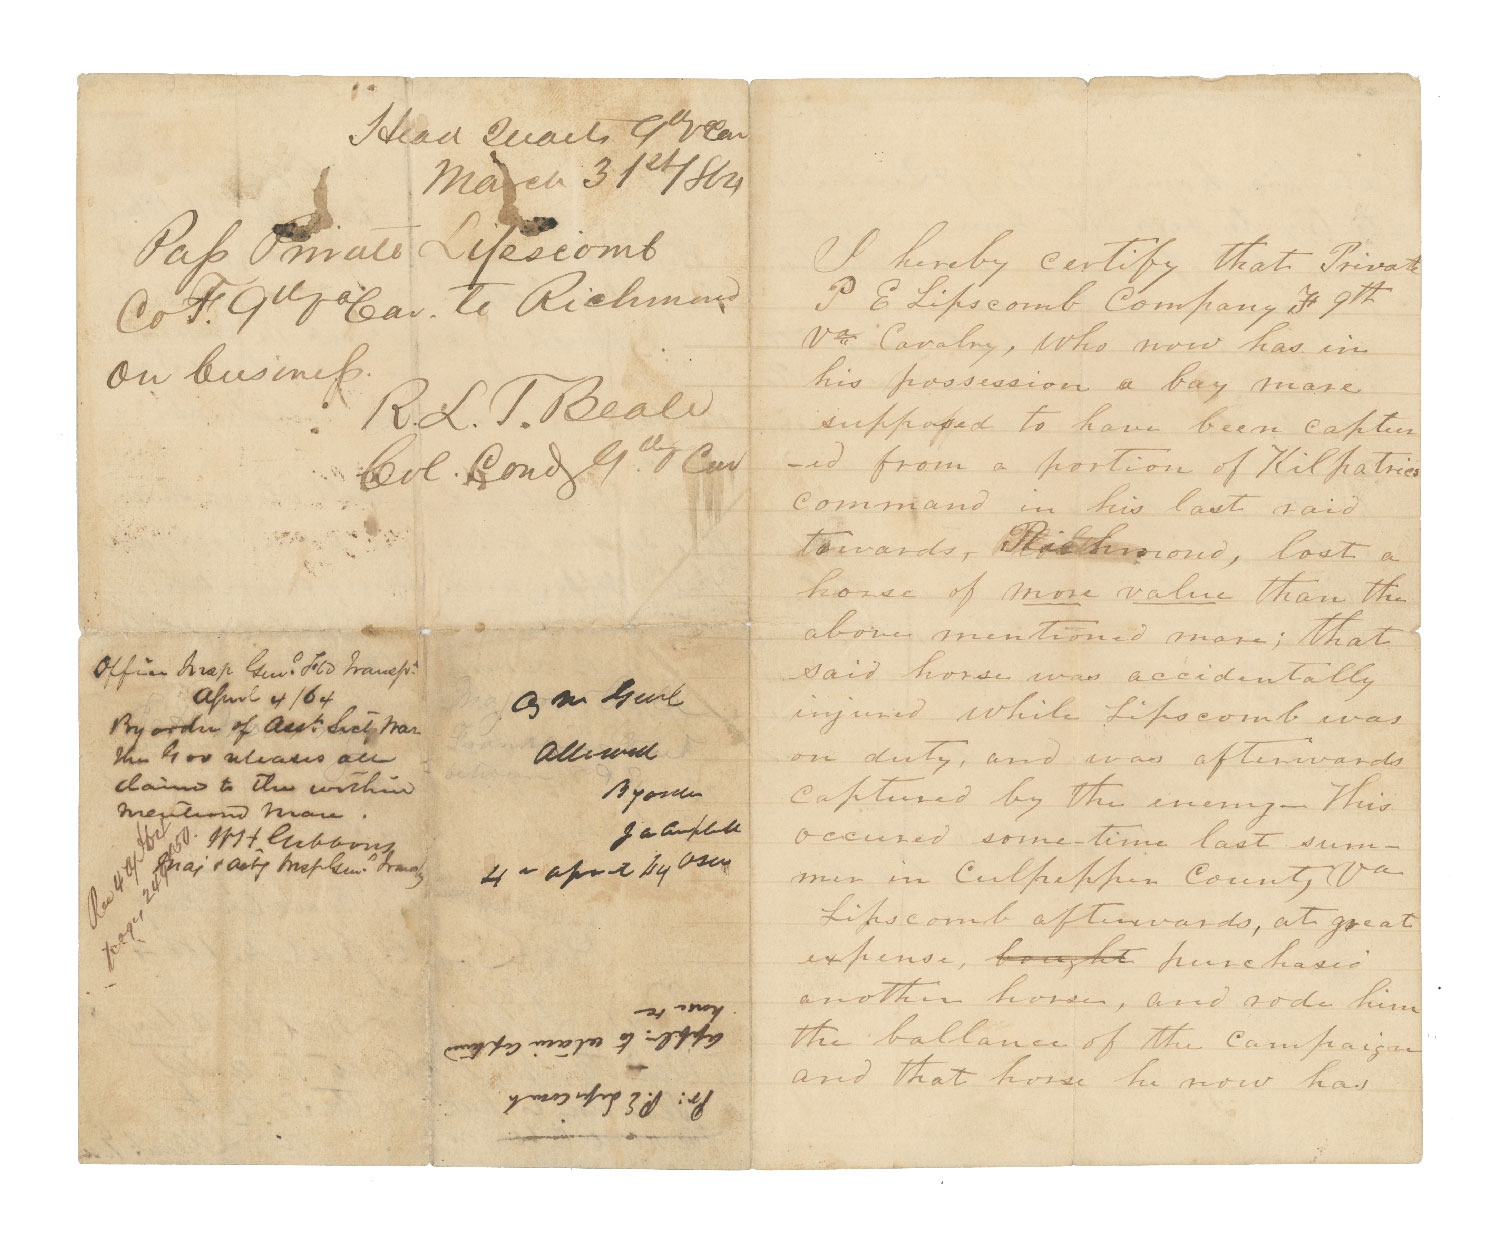 Head Quarts 9th V Cav
March 31st 1864
Pass Private Lipscomb
Co F. 9th Va Cav. to Richmond
on business.
R. L. T. Beale
Col. Comd 9th V Cav
Office Insp Genl Fd Transpn
April 4/64
By order of Asst Secty War
the Gov releases all
claim to the within
mentiond mare.
W H Gibbons
Maj & actg Insp Genl Transp
Rec 4 Apl
page 24
Q M Genl
Allowed
By order
J A Campbell
4th April 64 ASW
Pr: P. E Lipscomb
appln to retain captured
horse &c
I hereby certify that Private
P E Lipscomb Company F 9th
Va Cavalry, who now has in
his possession a bay mare
supposed to have been captur
-ed from a portion of Kilpatrics
command in his last raid
towards, Richmond, lost a
horse of more value than the
above mentioned mare; that
said horse was accidentally
injured while Lipscomb was
on duty, and was afterwards
captured by the enemy— This
occured some-time last sum-
mer in Culpepper County Va
Lipscomb afterwards, at great
expense, bought purchased
another horse, and rode him
the ballance of the campaign
and that horse he now has